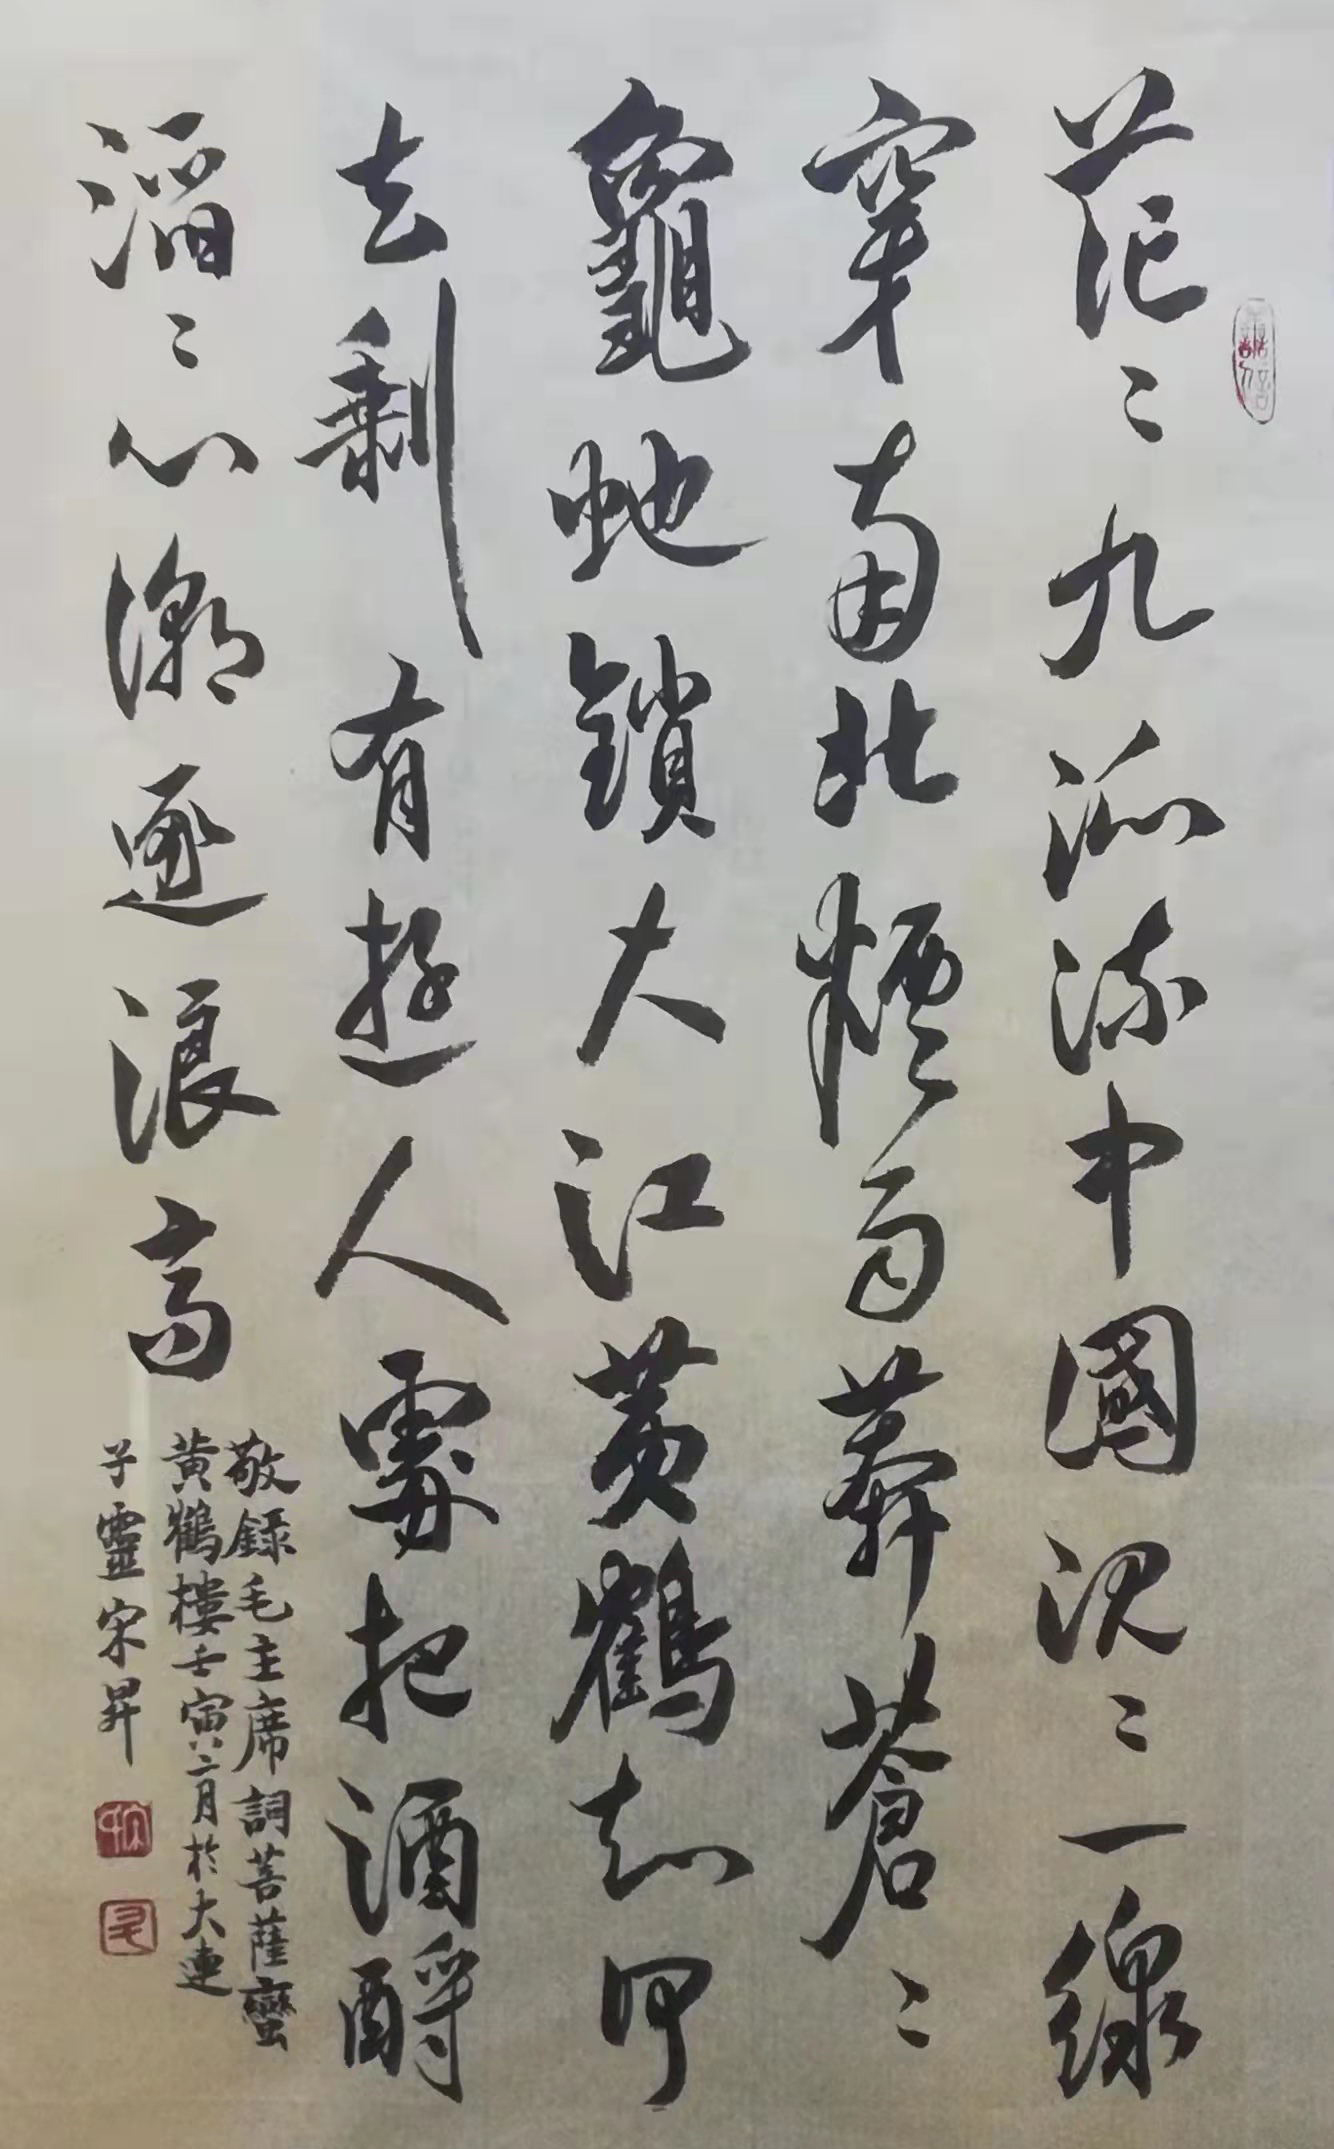 茫〻九派流中國沉〻一線
穿南北煙雨莽蒼〻
龜蛇鎖大江黃鶴知何
去剩有遊人處把酒酹
滔〻心潮逐浪高
敬錄毛主席詞菩薩蠻
黃鶴樓壬寅二月於大連
子靈宋昇